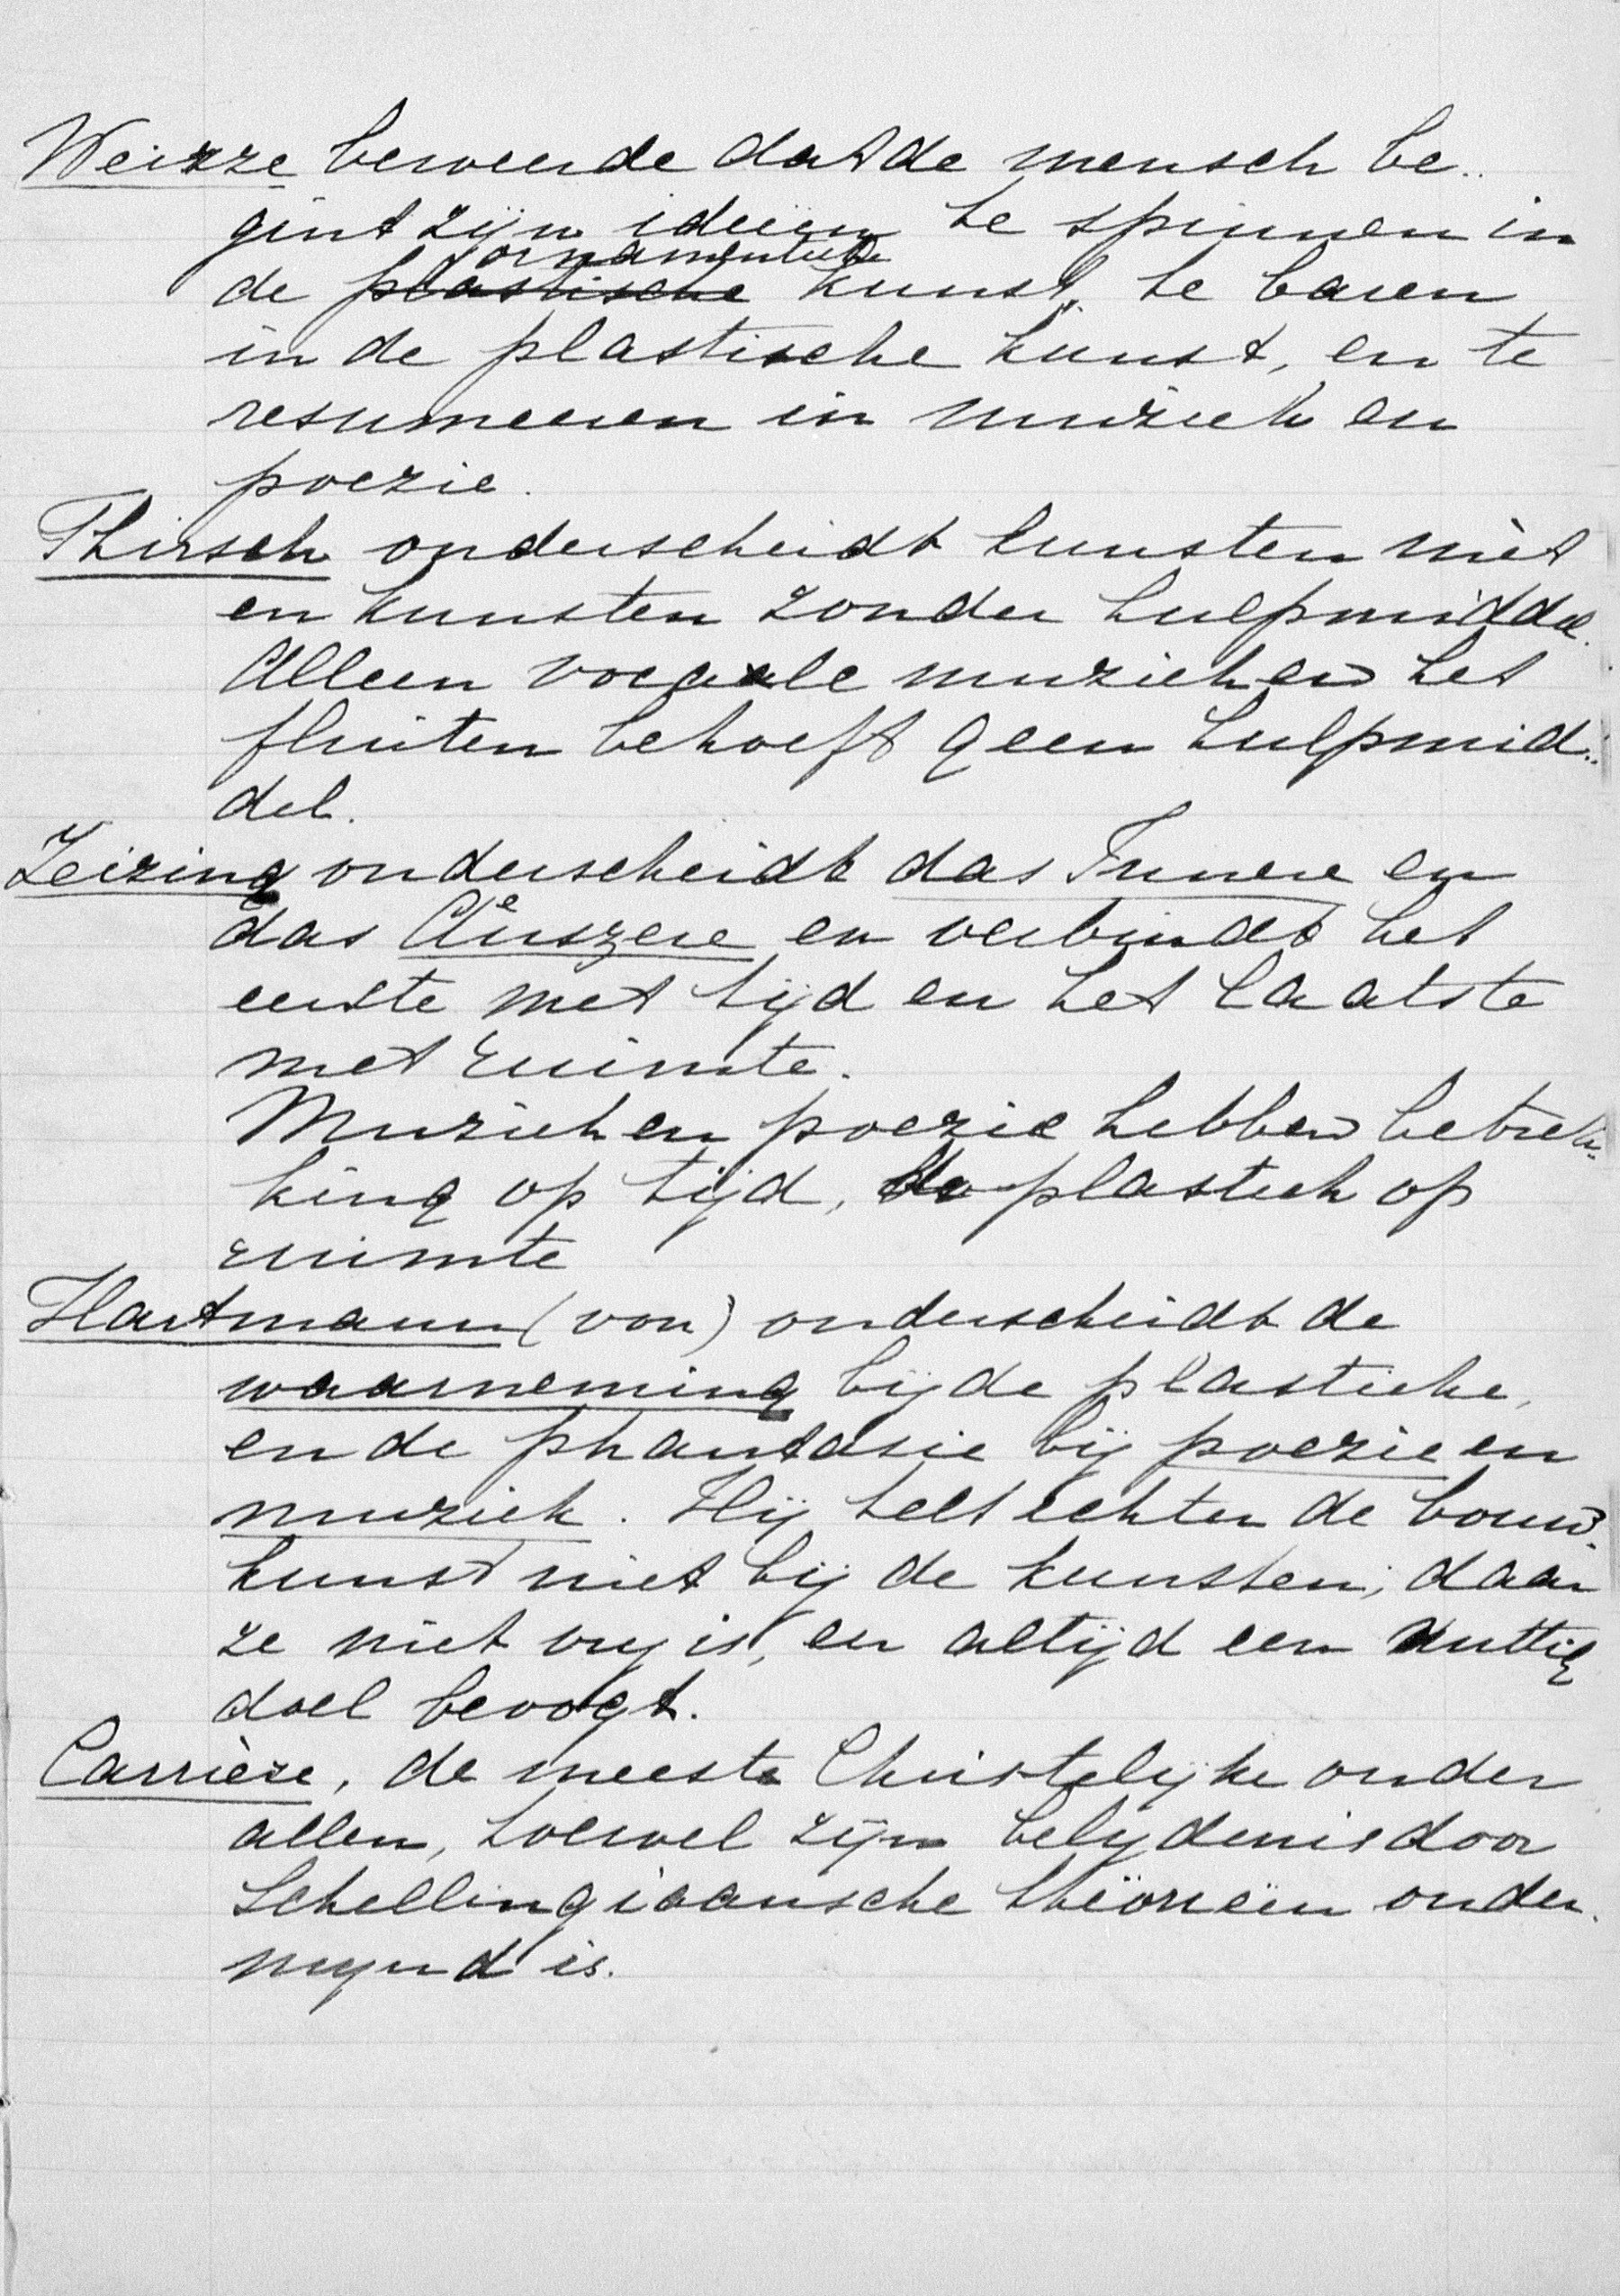 Weisze beweerde dat de mensch be..
gint zijn ideëen te spinnen in
ornamenteele
de plastische kunst, te baren
in de plastische kunst, en te
resumeeren in muziek en
poezie.
Thirsch onderscheidt kunsten mèt
en kunsten zonder hulpmiddel.
Alleen vocale muziek en het
fluiten behoeft geen hulpmid..
del.
Zeizing onderscheidt das Innere en
das Äuszere en verbindt het
eerste met tijd en het laatste
met ruimte.
Muziek en poezie hebben betrek..
king op tijd, de plastiek op
ruimte
Hartmann (von) onderscheidt de
waarneming bij de plastieke,
en de phantasie bij poezie en
muziek. Hij telt echter de bouw..
kunst niet bij de kunsten, daar
ze niet vrij is, en altijd een nuttig
doel beoogt.
Carrière, de meeste Christelijke onder
allen, hoewel zijn belijdenis door
Schellingiaansche theorieën onder..
mijnd is.